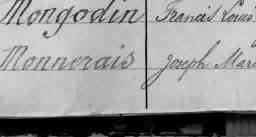 Mongodin Francis Louis
Monnerais Joseph Mari